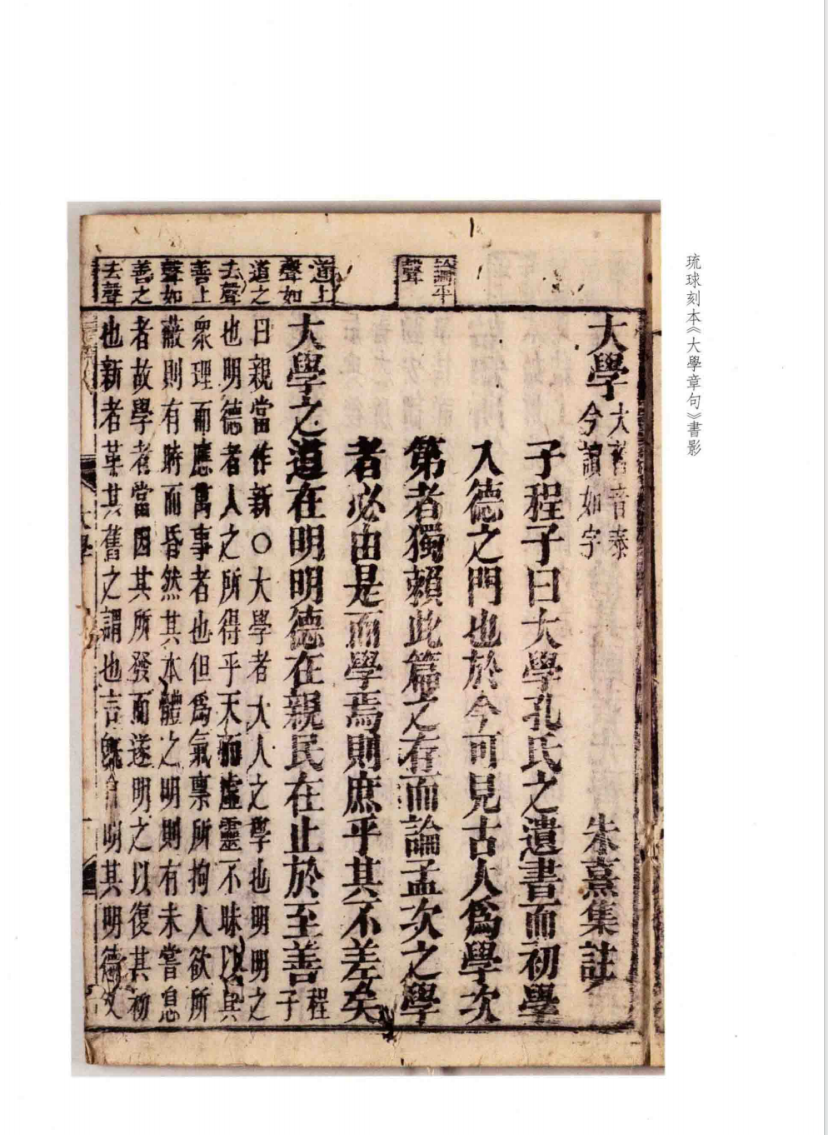 琉球刻本《大學章句》書影
論平
聲
道上
聲如
道之
去聲
善上
聲如
善之
去聲
大學 大舊音泰
今讀如字
朱熹集註
子程子曰大學孔氏之遺書而初學
入德之門也於今可見古人爲學次
第者獨賴此篇之存而論孟次之學
者必由是而學焉則庶乎其不差矣
大學之道在明明德在親民在止於至善 程
子
曰親當作新○大學者大人之學也明明之
也明德者人之所得乎天而虛靈不昧以具
衆理而應萬事者也但爲氣稟所拘人欲所
蔽則有時而昏然其本體之明則有未嘗息
者故學者當因其所發而遂明之以復其初
也新者革其舊之謂也言既自明其明德又
大學